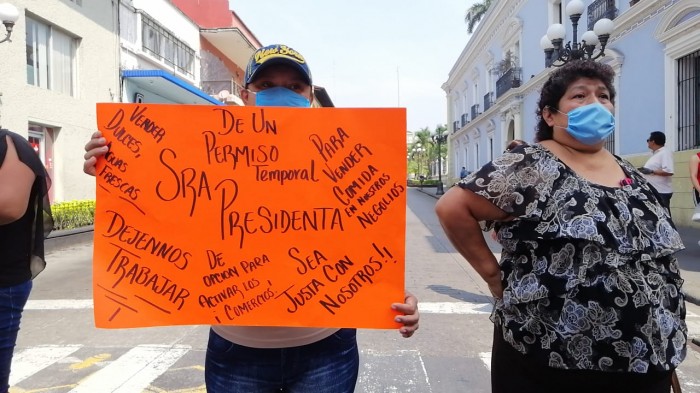 VENDER
DULCES,
AGUAS
FRESCAS
DE UN
PERMISO
TEMPORAL
PARA
VENDER
COMIDA
EN NUESTROS
NEGOCIOS
SRA
PRESIDENTA
DEJENNOS
TRABAJAR
DE
OPCION PARA
ACTIVAR LOS
¡COMERCIOS!
SEA
JUSTA CON
NOSOTROS!!